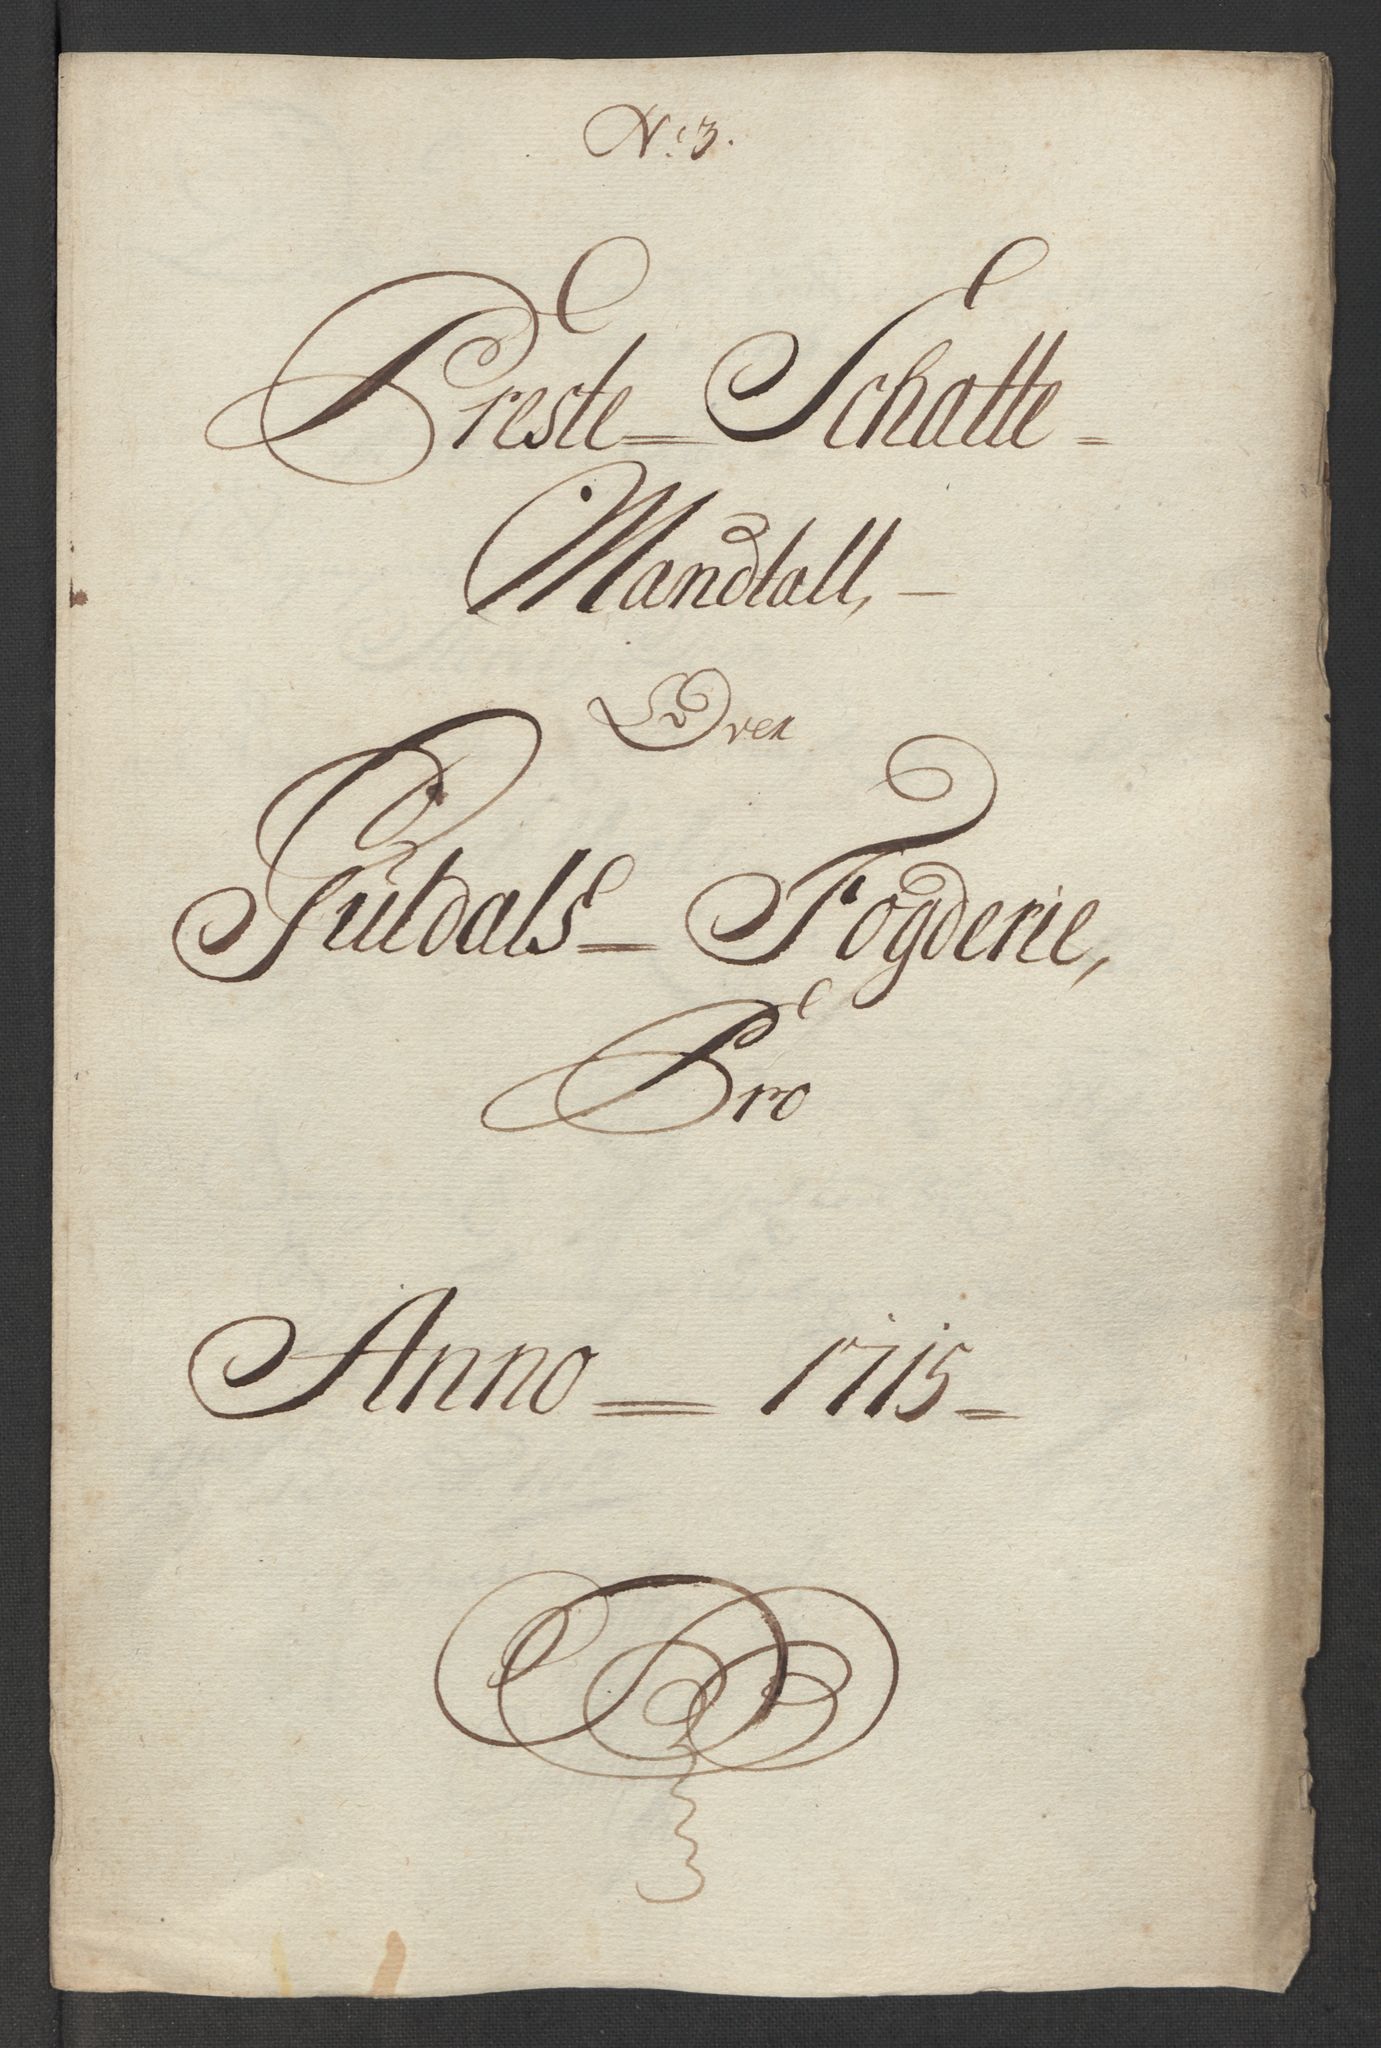 No: 3.
Preste= Schatte=
Mandtall, —
Over
Guldals= Fogderie,
Pro
Anno = 1715 =